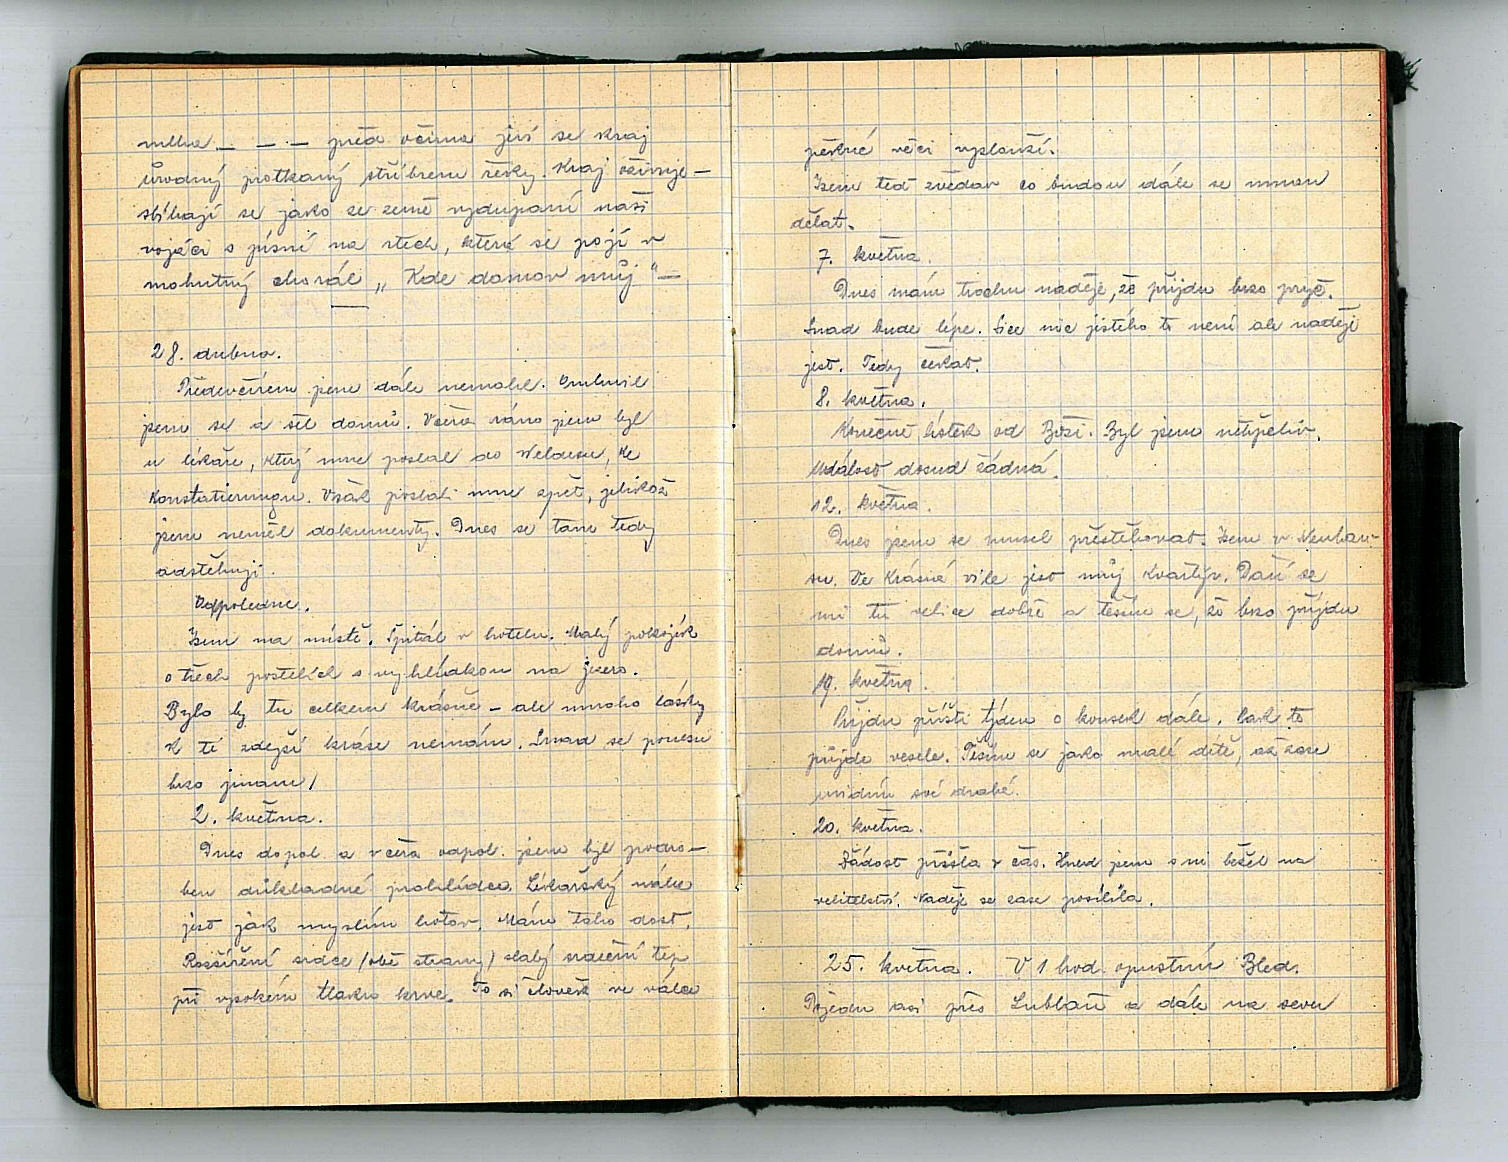 mlha — — — před očima jeví se kraj
úrodný protkaný stříbrem řeky. Kraj oživuje —
sbíhají se jako ze země vydupaní naši
vojáci s písní na rtech, která se pojí v
mohutný chorál „Kde domov můj“ —
28. dubna.
Předevčírem jsem dále nemohl. Omluvil
jsem se a šel domů. Včera ráno jsem byl
u lékaře, který mne poslal do Veldesu, ke
Konstatierungu. Však poslali mne zpět, jelikož
jsem neměl dokumenty. Dnes se tam tedy
odstěhuji.
Odpoledne.
Jsem na místě. Špitál v hotelu. Malý pokojík
o třech postelích s vyhlídkou na jezero.
Bylo by tu celkem krásně – ale mnoho lásky
k té zdejší kráse nemám. Snad se ponesu
brzo jinam!
2. května.
Dnes dopol. a včera odpol. jsem byl podro–
ben důkladné prohlídce. Lékařský nález
jest jak myslím hotov. Mám toho dost.
Rozšíření srdce (obě strany) slabý srdeční tep
při vysokém tlaku krve. To si člověk ve válce
pěkné věci vyslouží.
Jsem teď zvědav co budou dále se mnou
dělat.
7. května.
Dnes mám trochu naděje, že přijdu brzo pryč.
Snad bude lépe. Sice nic jistého to není ale naděje
jest. Tedy čekat.
8. května.
Konečně lístek od Boži. Byl jsem netrpěliv.
Událost dosud žádná.
12. května.
Dnes jsem se musel přestěhovat. Jsem v Neuhau–
su. Ve krásné vile jest můj kvartýr. Daří se
mi tu velice dobře a těším se, že brzo přijdu
domů.
19. května.
Přijdu příští týden o kousek dále. Pak to
půjde vesele. Těším se jako malé dítě, až zase
uvidím své drahé.
20. května.
Žádost přišla v čas. Hned jsem s ní běžel na
velitelství. Naděje se zase posílila.
25. května. V 1 hod. opustím Bled.
Pojedu asi přes Lublaň a dále na sever